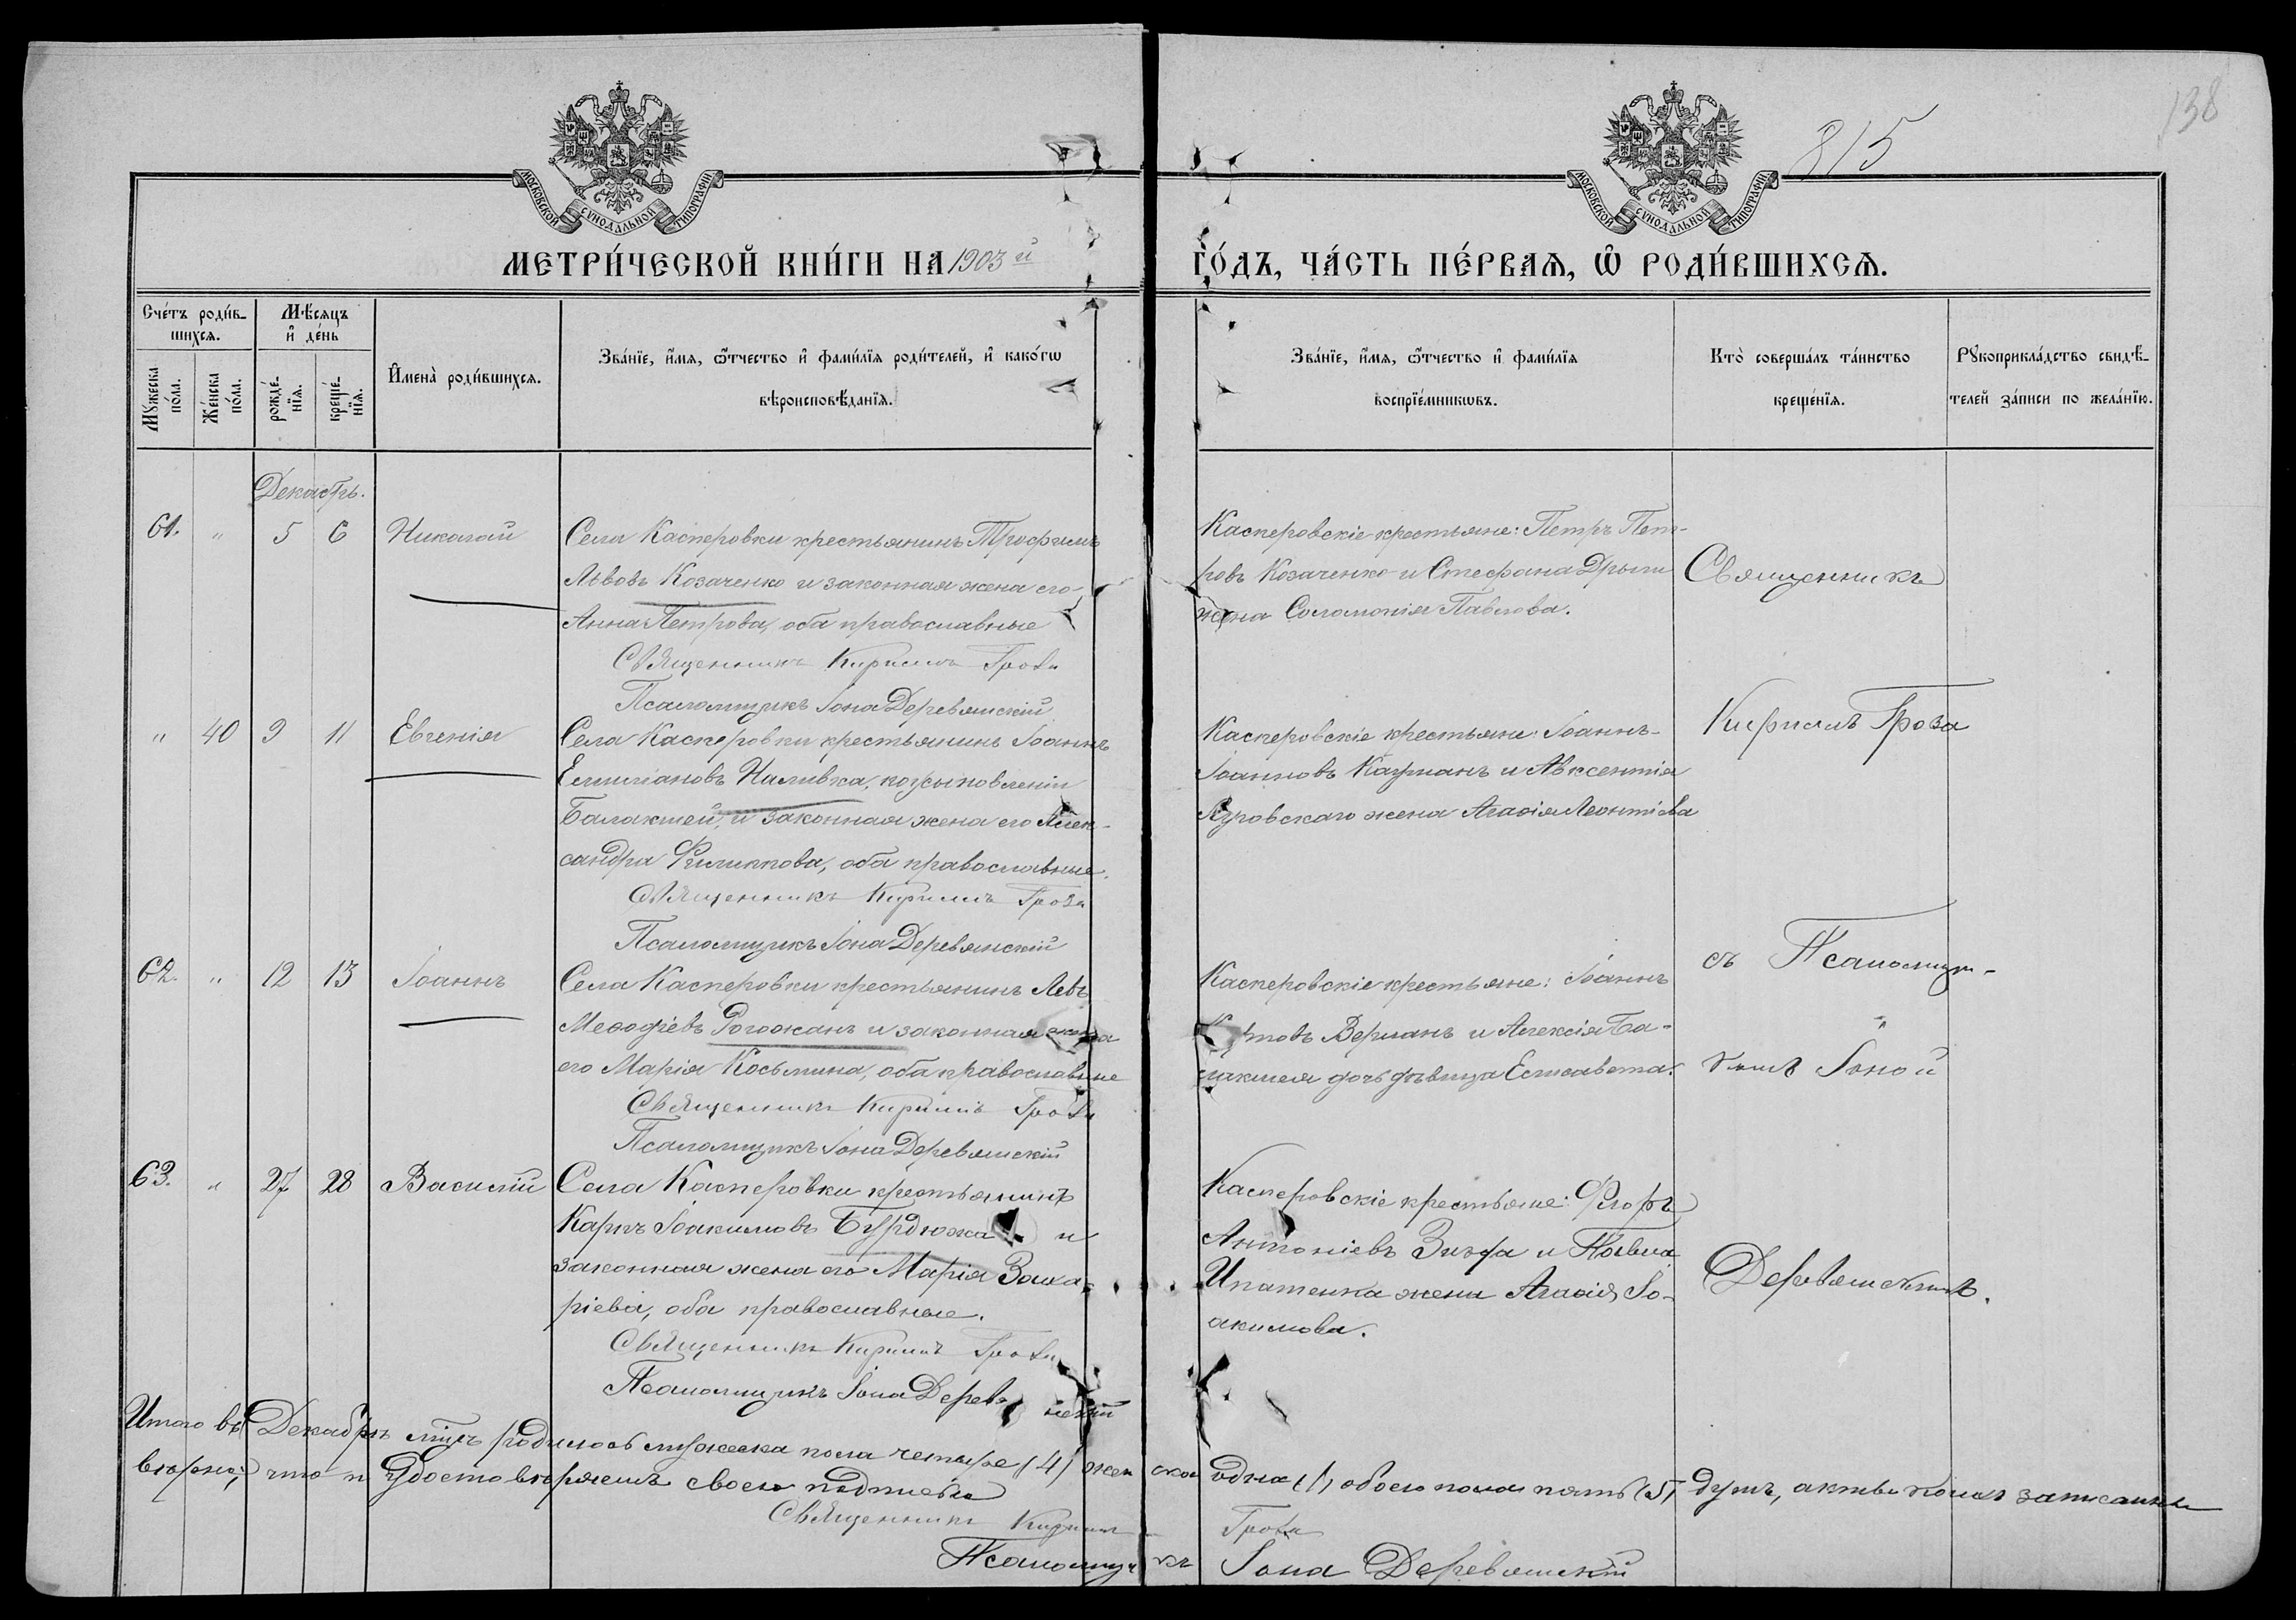 138
815
МОСКОВСКОЙ СѴНОДАЛЬНОЙ ТИПОГРАФІИ
МОСКОВСКОЙ СѴНОДАЛЬНОЙ ТИПОГРАФІИ
МЕТРИ́ЧЕСКОЙ КНИ́ГИ НА 1903 й
ГО́ДЪ, ЧА́СТЬ ПЕ́РВАѦ, Ѡ҆ РОДИ́ВШИХСѦ.
Сче́тъ роди́в-
шихсѧ.
Мѣ́сѧцъ
и҆ де́нь
Мꙋ́жеска
по́ла.
Же́нска
по́ла.
рожде́-
нїѧ.
креще́-
нїѧ.
И҆мена̀ роди́вшихсѧ.
Зва́нїе, и҆́мѧ, ѻ҆́тчество и҆ фами́лїѧ роди́телей, и҆ како́гѡ
вѣроисповѣ́данїѧ.
Зва́нїе, и҆́мѧ, ѻ҆́тчество и҆ фами́лїѧ
воспрїе́мникѡвъ.
Кто̀ соверша́лъ та́инство
креще́нїѧ.
Рꙋкоприкла́дство свидѣ́-
телей за́писи по жела́нїю.
Декабрь.
61. " 5 6 Николай Села Касперовки крестьянинъ Трофимъ
Львовъ Козаченко и законная жена его
Анна Петрова, оба православные
Священникъ Кириллъ Гроза
Псаломщикъ Іона Деревянскій
Касперовскіе крестьяне: Петръ Пет-
ровъ Козаченко и Стефана Дрыги
жена Соломонія Павлова.
Священникъ
" 40 9 11 Евгенія Села Касперовки крестьянинъ Іоаннъ
Емиліановъ Наливка, по усыновленію
Балакшей, и законная жена его Алек-
сандра Филиппова, оба православные.
Священникъ Кириллъ Гроза
Псаломщикъ Іона Деревянскій
Касперовскіе крестьяне: Іоаннъ
Іоанновъ Кацманъ и Авксентія
жена Агафія Леонтіева
Кириллъ Гроза
62. " 12 13 Іоаннъ Села Касперовки крестьянинъ Левъ
Меѳодіевъ Рогожанъ и законная жена
его Марія Косьмина, оба православные
Священникъ Кириллъ Гроза
Псаломщикъ Іона Деревянскій
Касперовскіе крестьяне: Іоаннъ
Верланъ и Алексія Ба-
лакшея дочь дѣвица Елисавета.
съ Псаломщи-
комъ Іоной
63. " 27 28 Василій Села Касперовки крестьянинъ
Карпъ Іоакимовъ Бурдюжа и
законная жена его Марія Заха-
ріева, оба православные.
Священникъ Кириллъ Гроза
Псаломщикъ Іона Деревянскій
Касперовскіе крестьяне: Флоръ
Антоніевъ и Павла
Ипатенка жена Агафія Іо-
акимова.
Деревянскимъ.
Итого въ Декабрѣ мѣсяцѣ родилось мужеска пола четыре (4) женска одна (1) обоего пола пять (5) душъ, акты коихъ записаны
вѣрно, что и удостовѣряемъ своею подписью
Священникъ Кириллъ Гроза
Псаломщикъ Іона Деревянскій